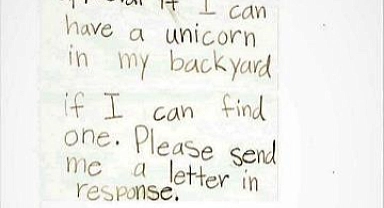 if I can
have a unicorn
in my backyard
if I can find
one. Please send
me a letter in
response.